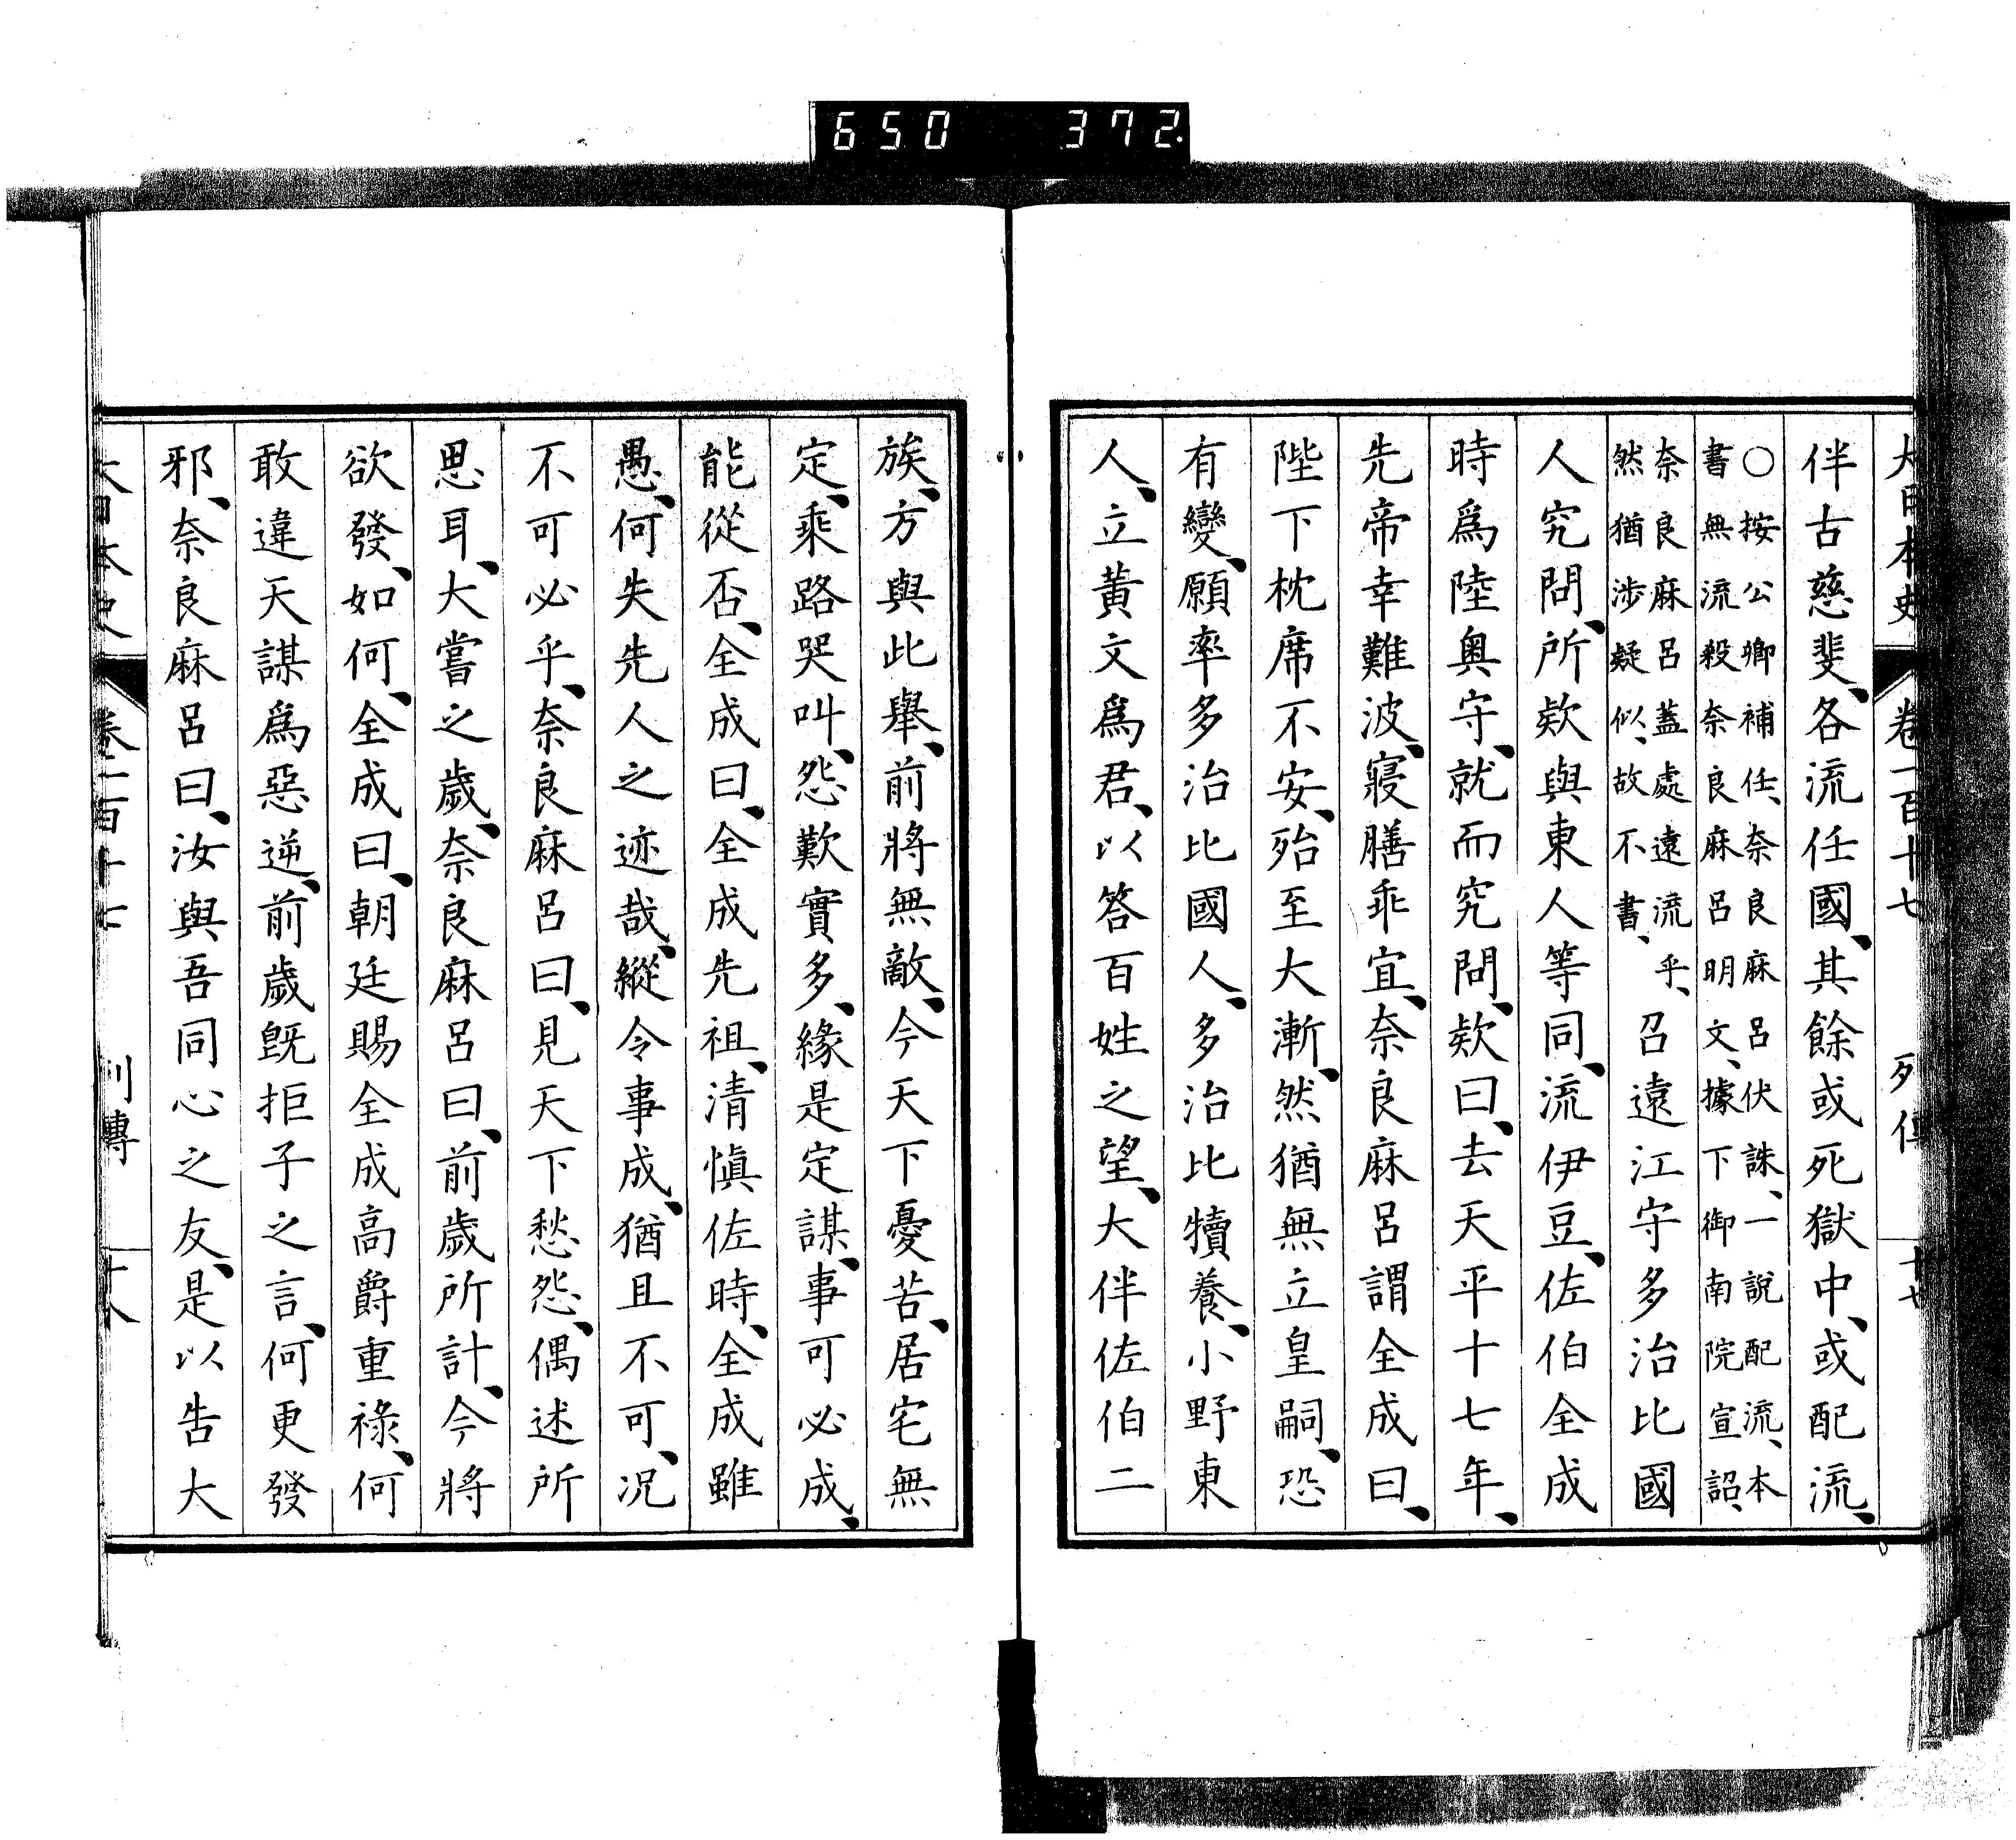 650 372.
大日本史 卷一百十七 列傳 十七
伴古慈斐、各流任國、其餘或死獄中、或配流、
○按公卿補任、奈良麻呂伏誅、一說配流、本
書無流殺奈良麻呂明文、據下御南院宣詔、
奈良麻呂蓋處遠流乎、
然猶涉疑似、故不書、
召遠江守多治比國
人究問、所欵與東人等同、流伊豆、佐伯全成
時爲陸奧守、就而究問、欵曰、去天平十七年、
先帝幸難波、寢膳乖宜、奈良麻呂謂全成曰、
陛下枕席不安、殆至大漸、然猶無立皇嗣、恐
有變、願率多治比國人、多治比犢養、小野東
人、立黃文爲君、以答百姓之望、大伴佐伯二
族、方與此舉、前將無敵、今天下憂苦、居宅無
定、乘路哭叫、怨歎實多、緣是定謀、事可必成、
能從否、全成曰、全成先祖、清愼佐時、全成雖
愚、何失先人之迹哉、縱令事成、猶且不可、況
不可必乎、奈良麻呂曰、見天下愁怨、偶述所
思耳、大嘗之歲、奈良麻呂曰、前歲所計、今將
欲發、如何、全成曰、朝廷賜全成高爵重祿、何
敢違天謀爲惡逆、前歲旣拒子之言、何更發
邪、奈良麻呂曰、汝與吾同心之友、是以告大
大日本史 卷一百十七 列傳 十八